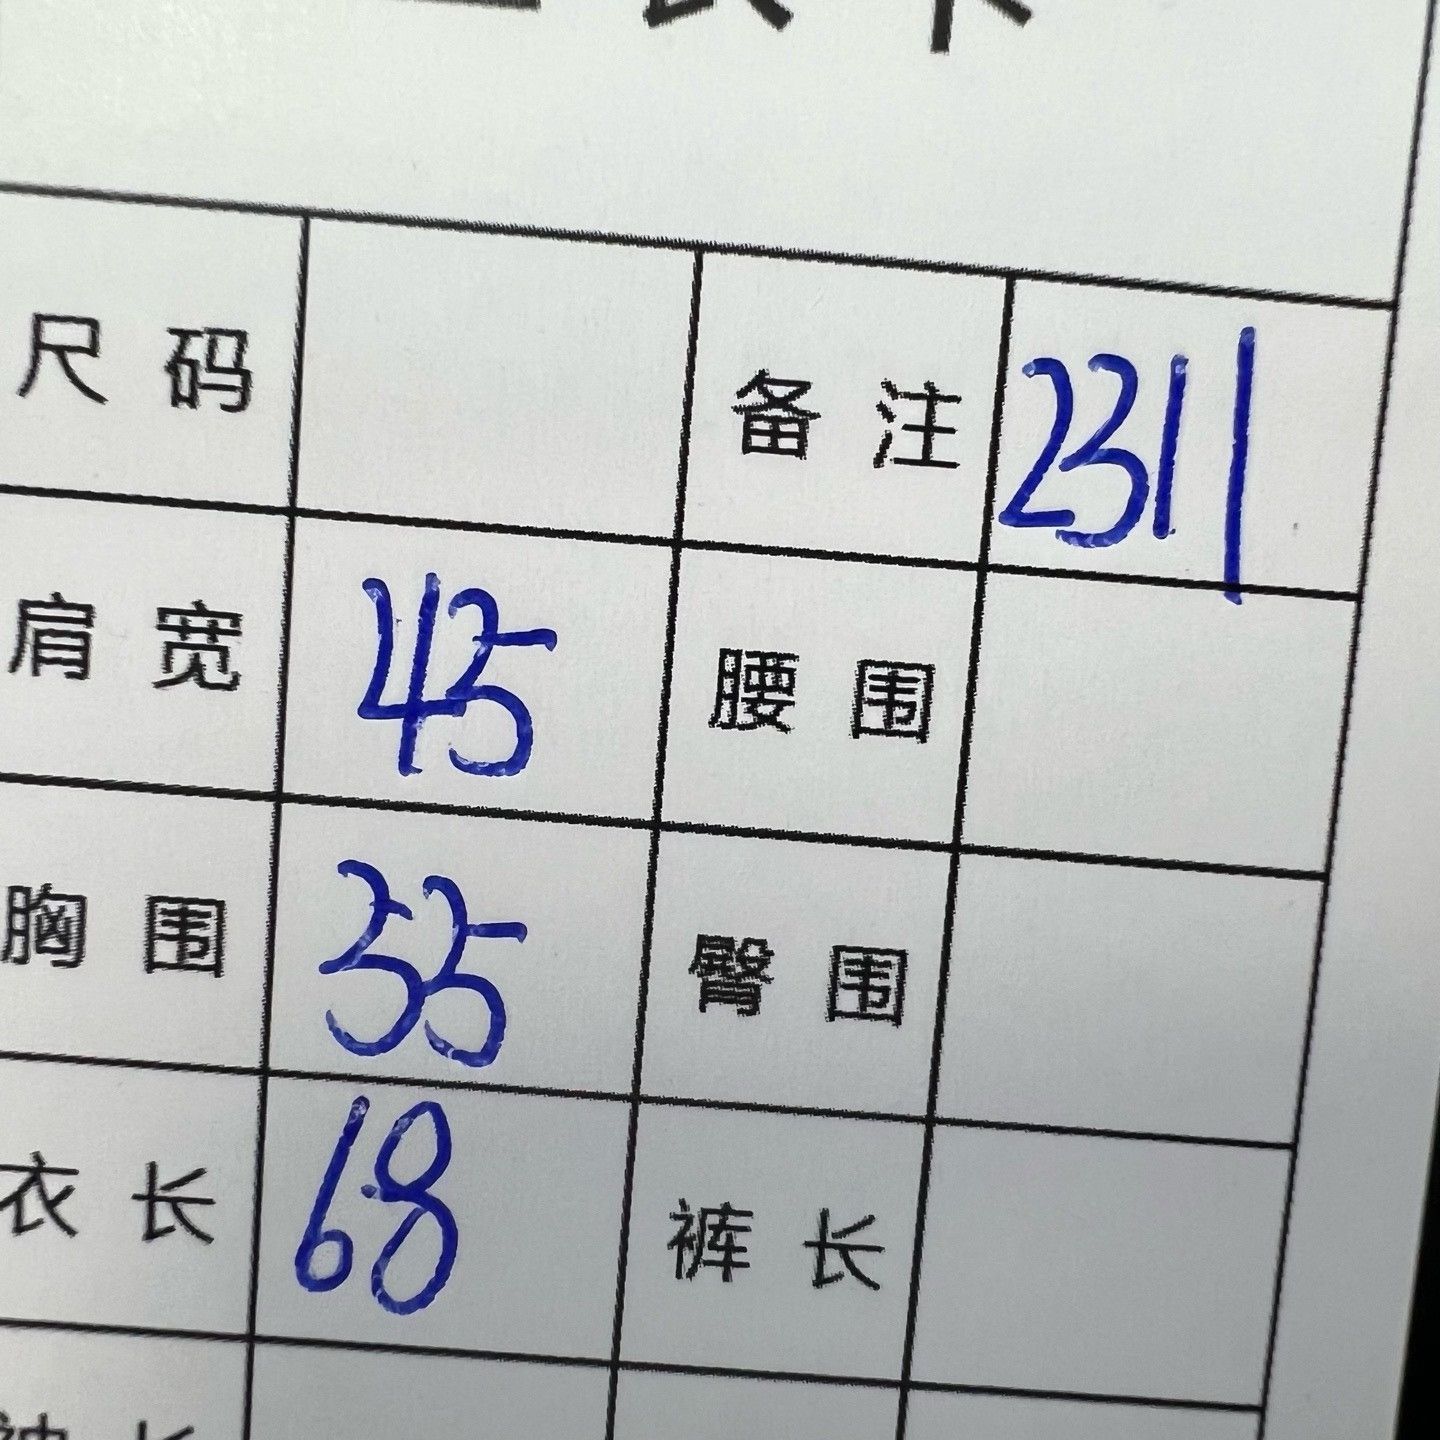 尺码 备注 2311
肩宽 45 腰围
胸围 55 臀围
衣长 68 裤长